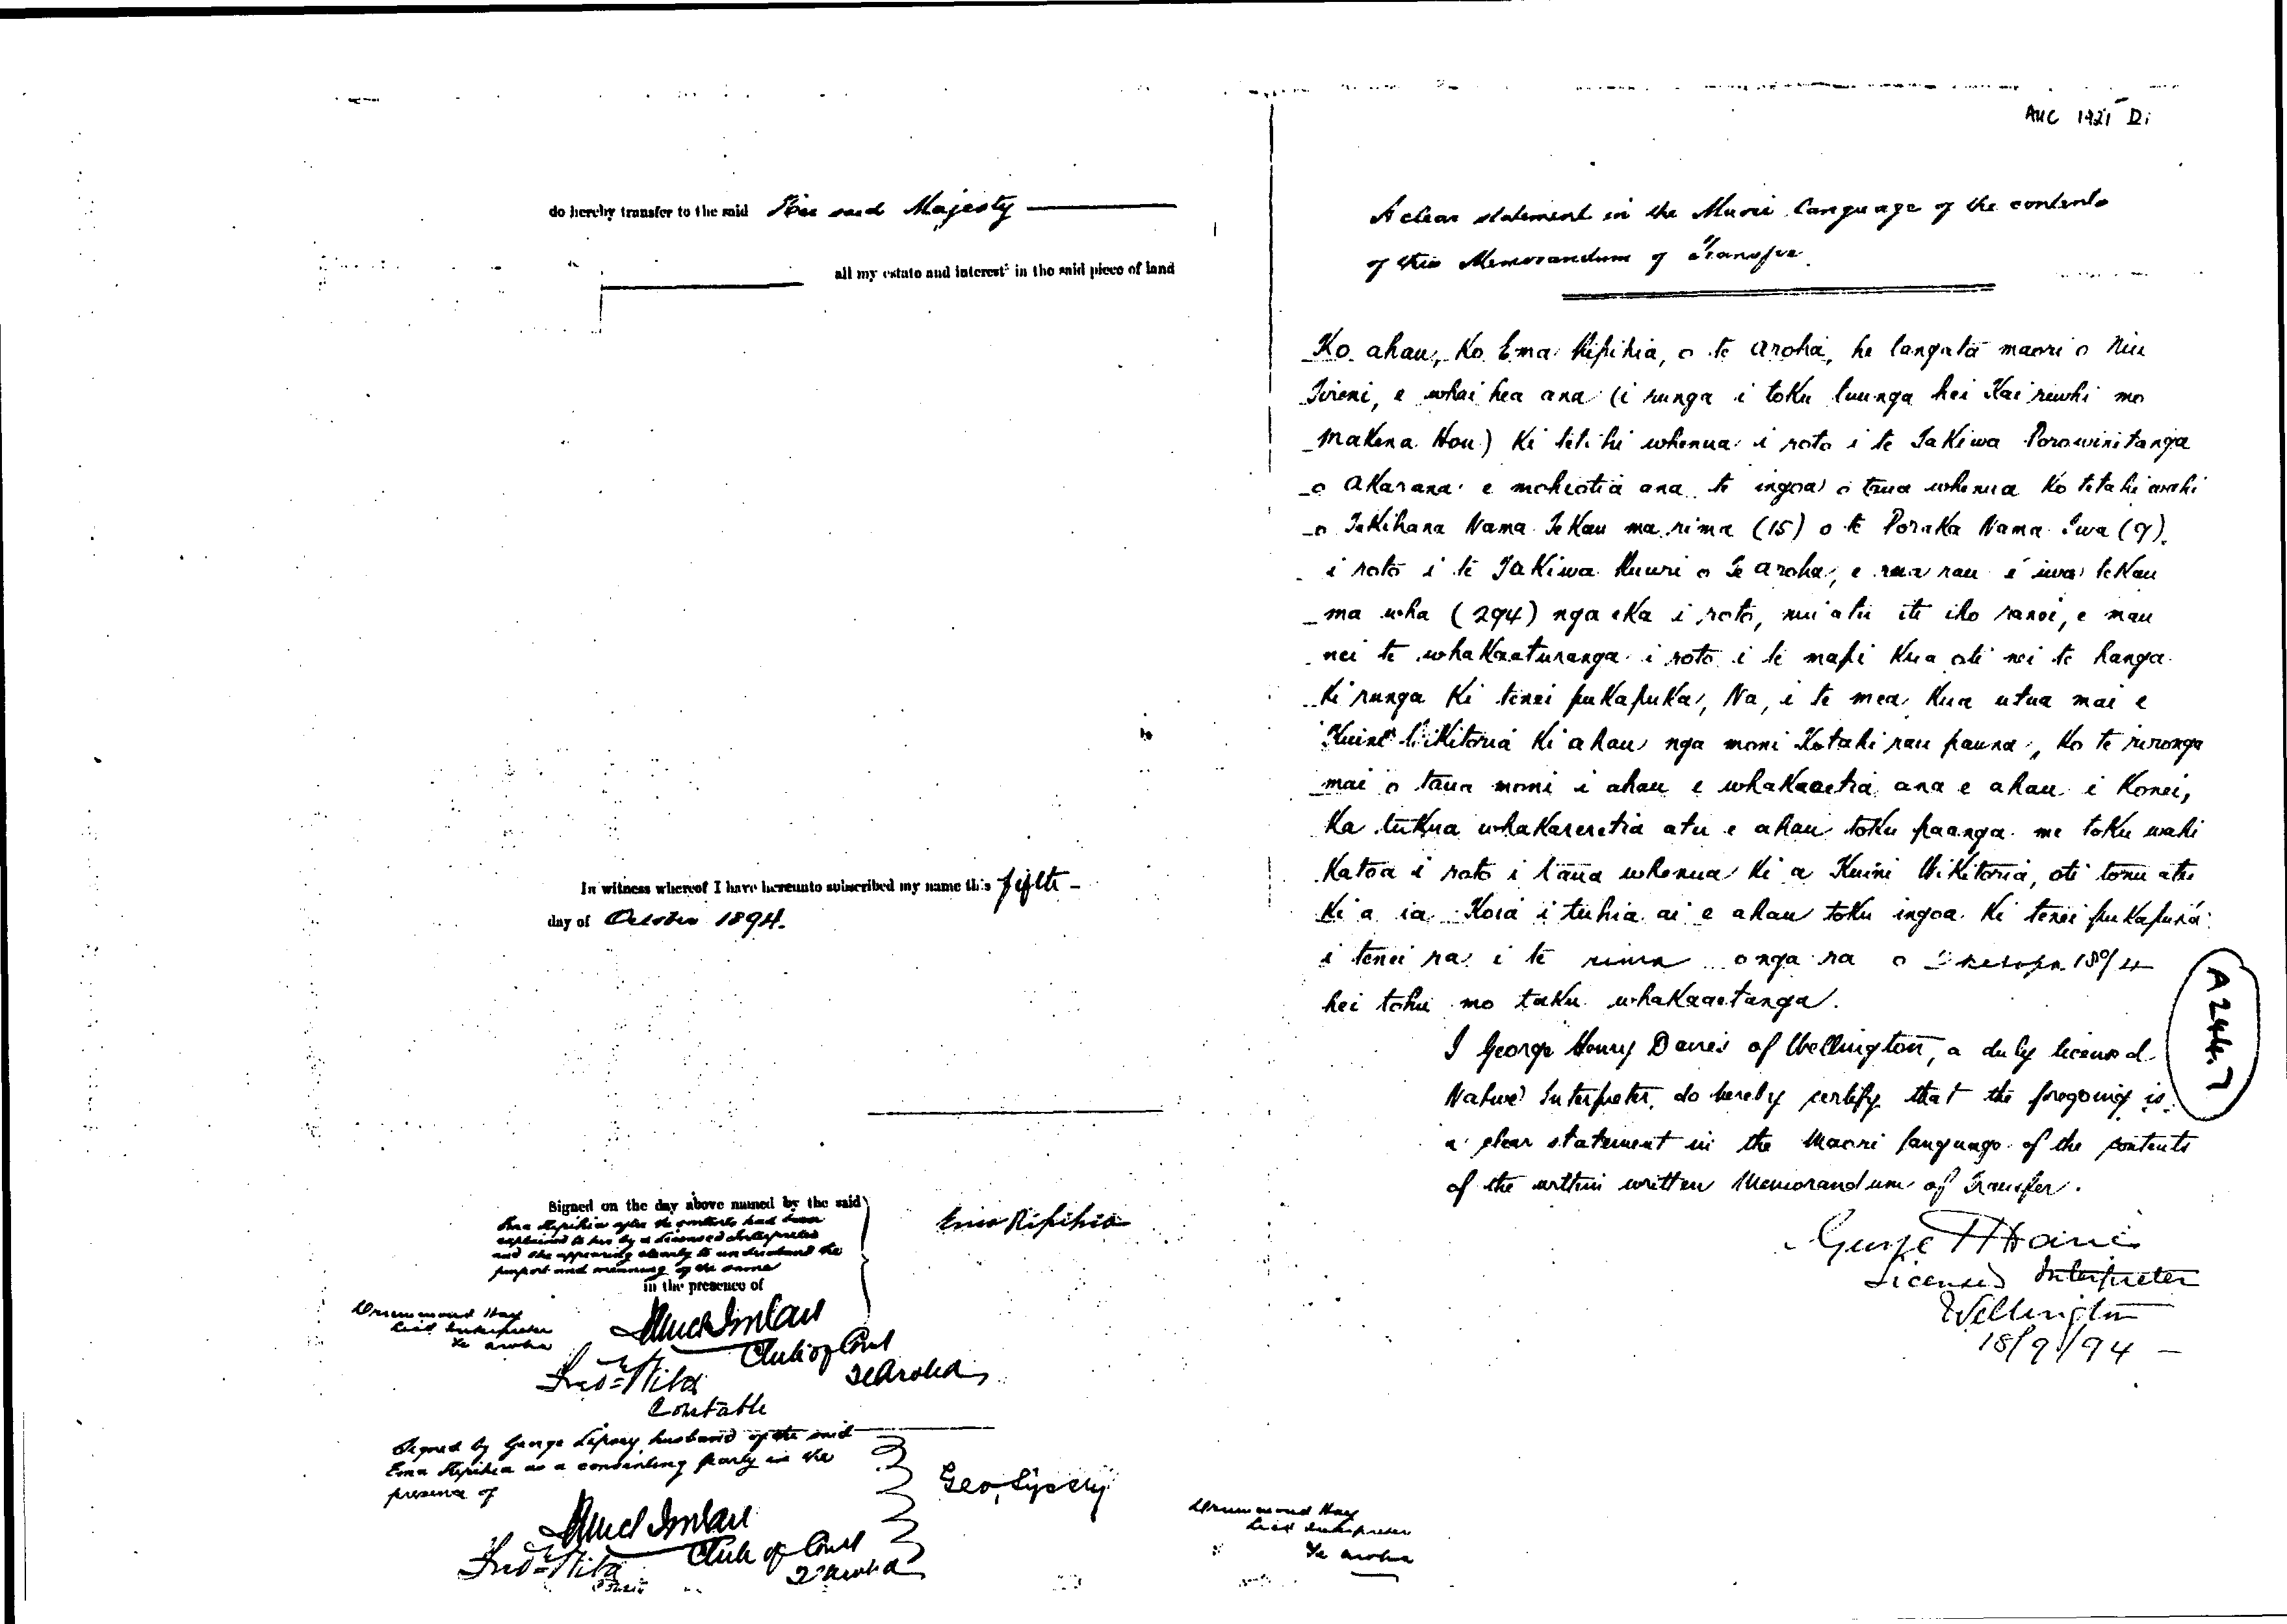 do hereby transfer to the said Her said Majesty
all my estate and interest in the said piece of land
In witness whereof I have hereunto subscribed my name this fifth
day of October 1894.
Signed on the day above named by the said
Ema Ripihia after the contents had been
explained to her by a Licensed Interpreter
and she appearing clearly to understand the
purport and meaning of the same
in the presence of
Ema Ripihia
Drummond Hay
Licd Interpreter
Te Aroha
Clerk of Court
Te Aroha
Constable
Signed by George Lipsey, husband of the said
Ema Ripihia as a consenting party in the
presence of
Geo, Lipsey
Clerk of Court
Te Aroha
Drummond Hay
Licd Interpreter
Te Aroha
AUC 1421 Di
A clear statement in the Maori Language of the contents
of this Memorandum of Transfer.
Ko ahau, Ko Ema Ripihia, o te Aroha, he tangata maori o Niu
Tireni, e whai hea ana (i runga i toku tuunga hei Kai riwhi mo
Makena Hou) Ki tetihi whenua i roto i te Takiwa Porowinitanga
o Akarana e mohiotia ana te ingoa o taua whenua Ko tetahi wahi
o Tekihana Nama Tekau ma rima (15) o te Poraka Nama Iwa (9).
i roto i te Takiwa Ruuri o Te Aroha, e rua rau e iwa tekau
ma wha (294) nga eka i roto, nui atu iti iho ranei, e mau
nei te whakaaturanga i roto i te mapi Kua oti nei te hanga
Ki runga Ki tenei pukapuka, Na, i te mea Kua utua mai e
Kuini Wikitoria Ki ahau nga moni Kotahi rau pauna, Ko te rironga
mai o taua moni i ahau e whakaaetia ana e ahau i Konei,
Ka tukua whakareretia atu e ahau toku paanga me toku wahi
Katoa i roto i taua whenua Ki a Kuini Wikitoria, oti tonu atu
Ki a ia Koia i tuhia ai e ahau toku ingoa Ki tenei pukapuka
i tenei ra i te rima o nga ra o Oketopa 1894
hei tohu mo taku whakaaetanga.
I George Henry Davies of Wellington, a duly licensed
Native Interpreter, do hereby certify that the foregoing is
a clear statement in the Maori language of the contents
of the within written Memorandum of Transfer.
George H Davies
Licensed Interpreter
Wellington
18/9/94
A244.7